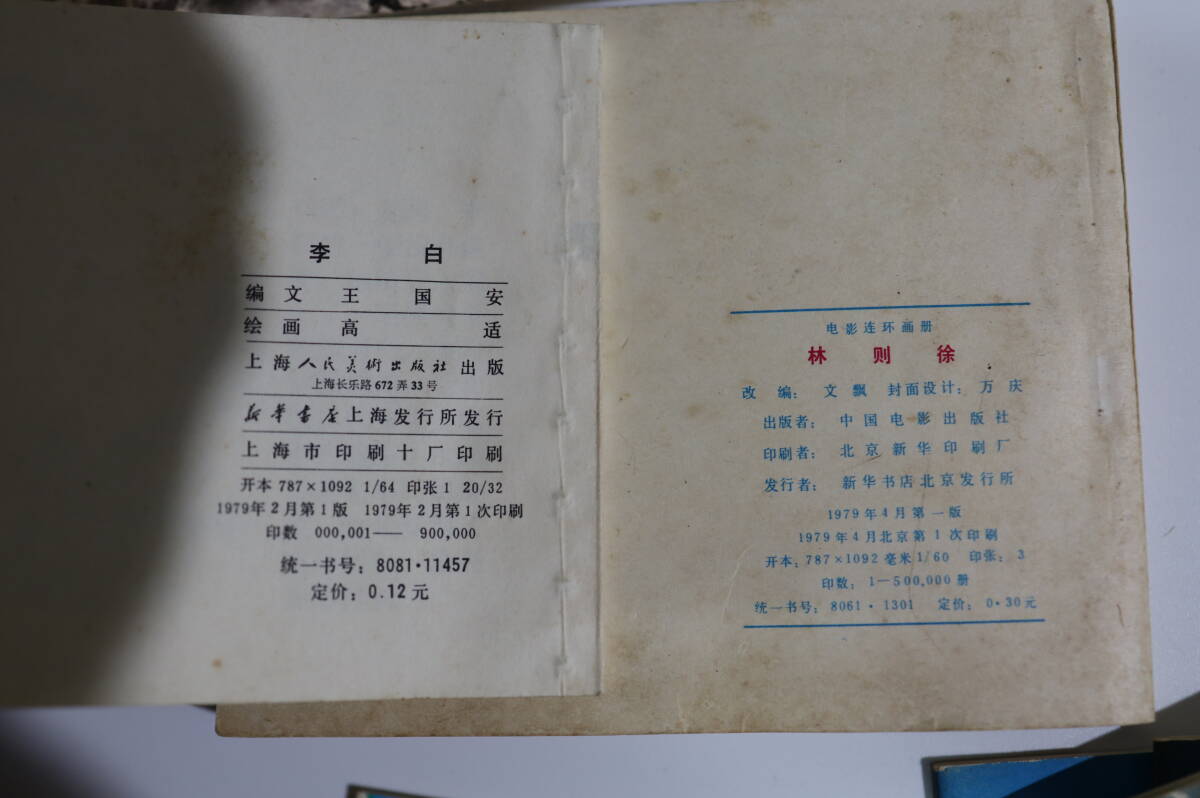 李 白
编文 王国安
绘画 高适
上海人民美術出版社出版
上海长乐路672弄33号
新华書店上海发行所发行
上海市印刷十厂印刷
开本 787×1092 1/64 印张 1 20/32
1979年2月第1版 1979年2月第1次印刷
印数 000,001—900,000
统一书号：8081·11457
定价：0.12元
电影连环画册
林则徐
改编：文飘 封面设计：万庆
出版者：中国电影出版社
印刷者：北京新华印刷厂
发行者：新华书店北京发行所
1979年4月第一版
1979年4月北京第1次印刷
开本：787×1092毫米1/60 印张：3
印数：1—500,000册
统一书号：8061·1301 定价：0·30元